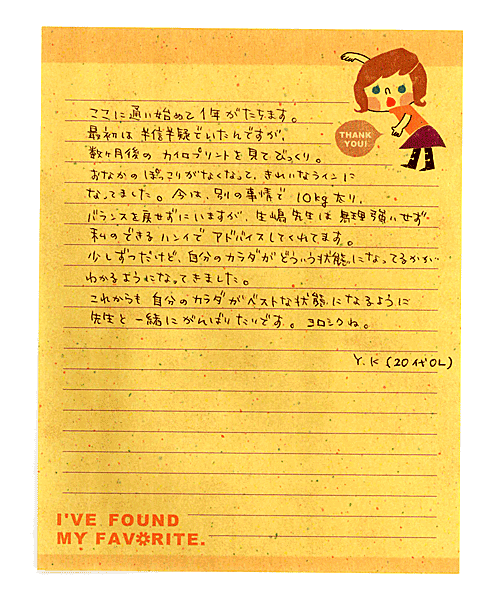 ここに通い始めて1年がたちます。
最初は半信半疑でいたんですが、
数ヶ月後のカイロプリントを見てびっくり。
おなかのぽっこりがなくなって、きれいなラインに
なってました。今は、別の事情で10kg太り、
バランスを戻せずにいますが、生嶋先生は無理強いせず
私のできるハンイでアドバイスしてくれてます。
少しずつだけど、自分のカラダがどういう状態になってるかが
わかるようになってきました。
これからも自分のカラダがベストな状態になるように
先生と一緒にがんばりたいです。ヨロシクね。
Y.K(20代OL)
THANK
YOU!
I'VE FOUND
MY FAVORITE.